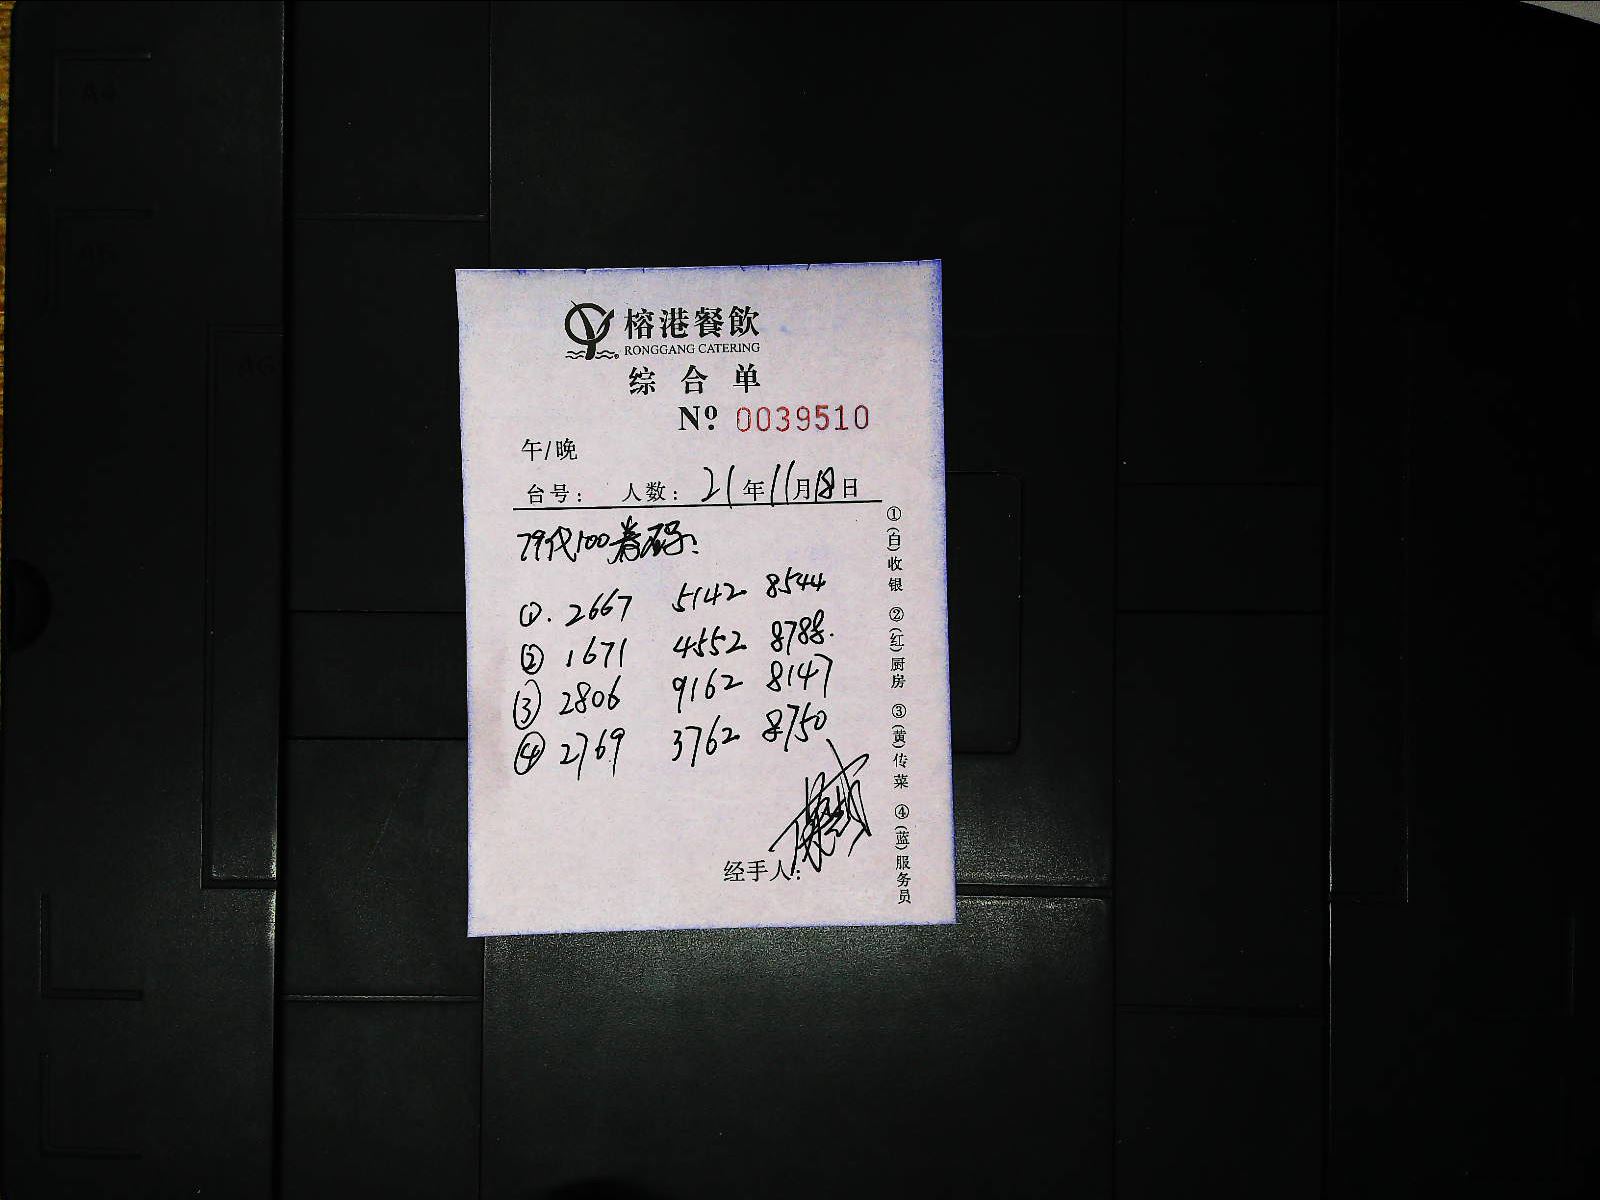 榕港餐飲
RONGGANG CATERING
综合单
Nº 0039510
午/晚
台号： 人数：21年11月18日
79代100券码：
①. 2667 5142 8544
② 1671 4552 8788.
③ 2806 9162 8147
④ 2769 3762 8750
经手人：
①(白)收银 ②(红)厨房 ③(黄)传菜 ④(蓝)服务员